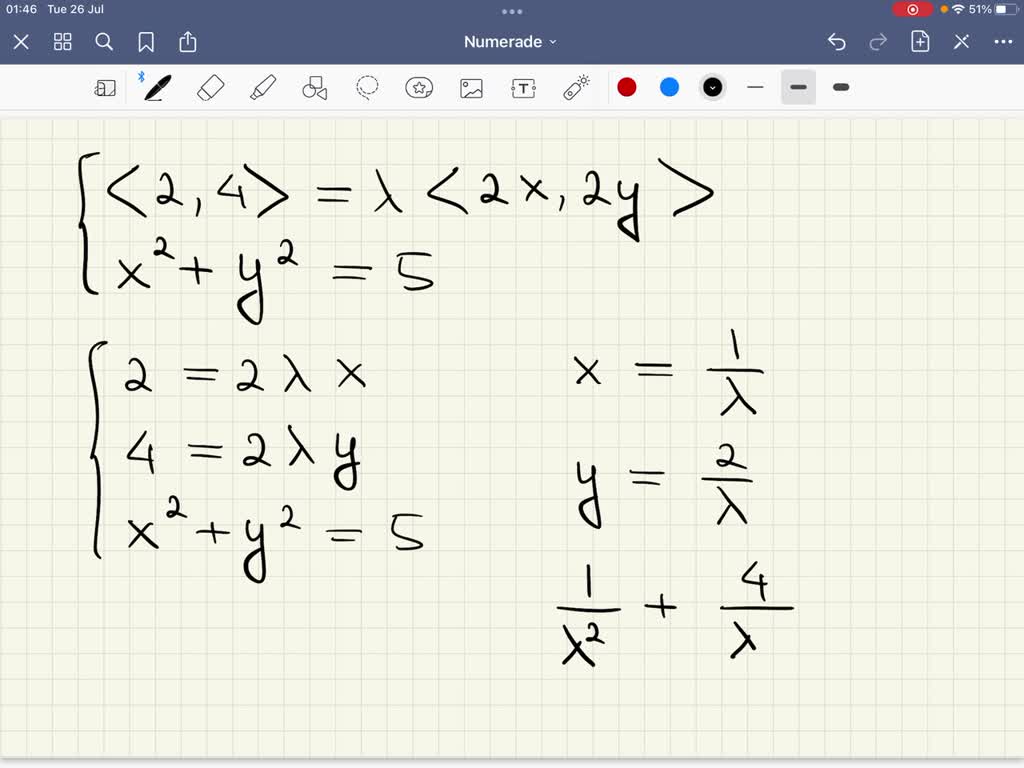 01:46 Tue 26 Jul 51%
Numerade
T
<2, 4> = λ <2x, 2y>
x² + y² = 5
2 = 2λx
4 = 2λy
x² + y² = 5
x = 1/λ
y = 2/λ
1/λ² + 4/λ